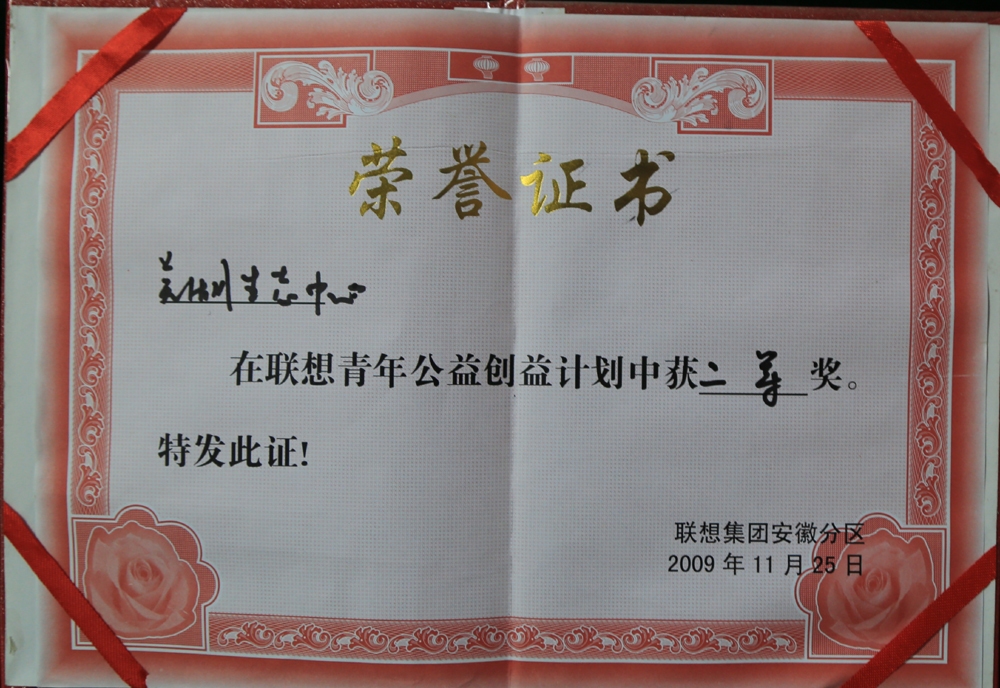 荣誉证书
芜湖生态中心
在联想青年公益创益计划中获二等奖。
特发此证!
联想集团安徽分区
2009年11月25日